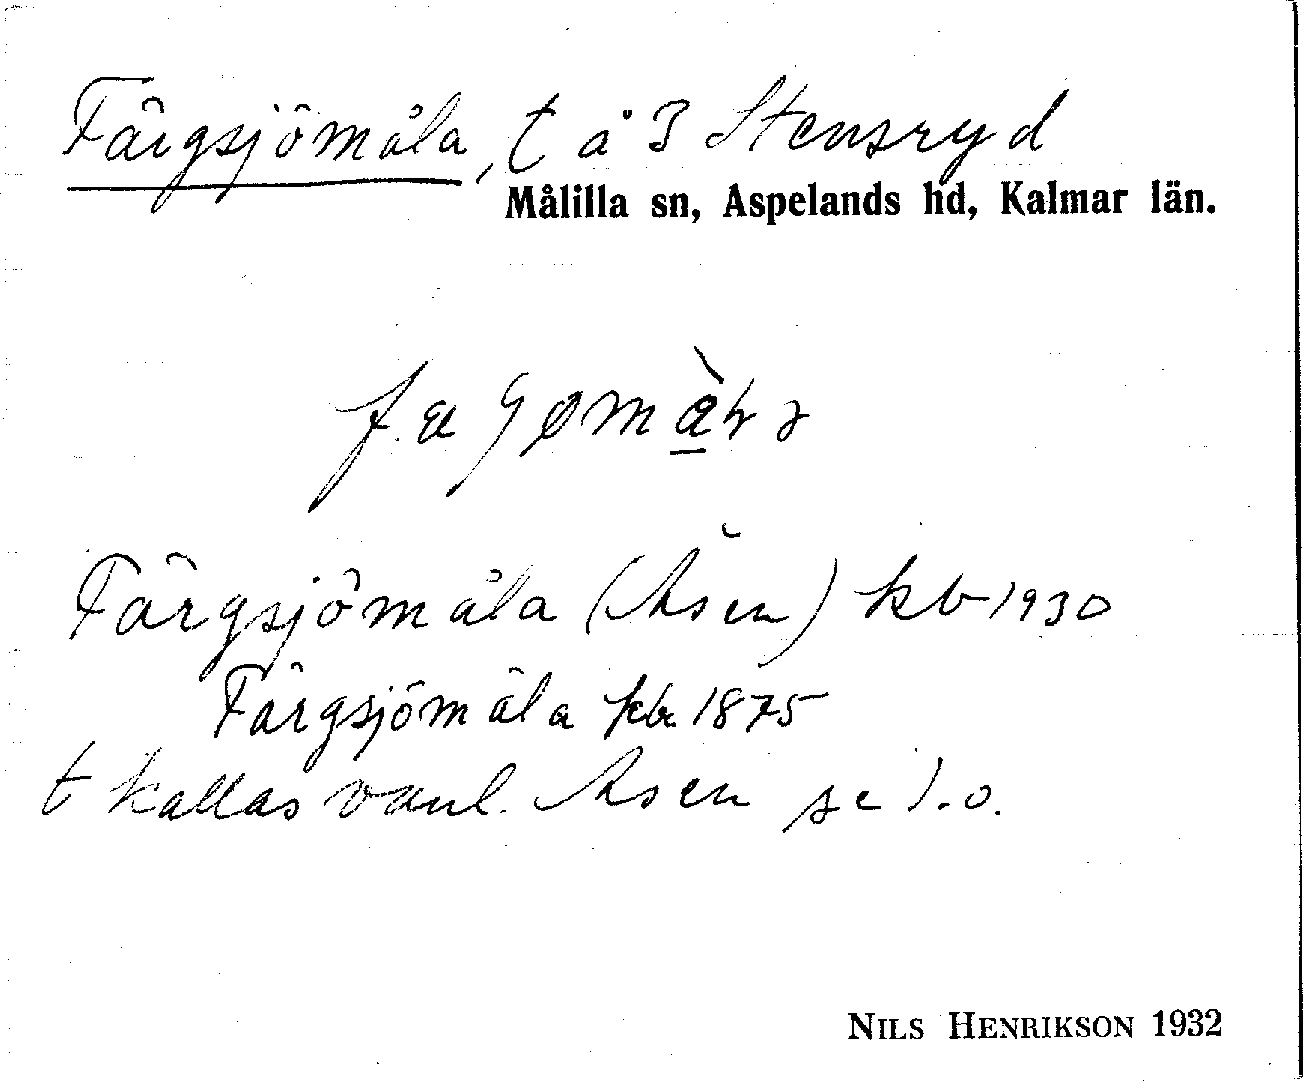 Färgsjömåla, t å 3 Stensryd
Målilla sn, Aspelands hd, Kalmar län.
Färgsjömåla (Åsen) kb 1930
Färgsjömåla kb 1875
t kallas vanl. Åsen se d.o.
NILS HENRIKSON 1932